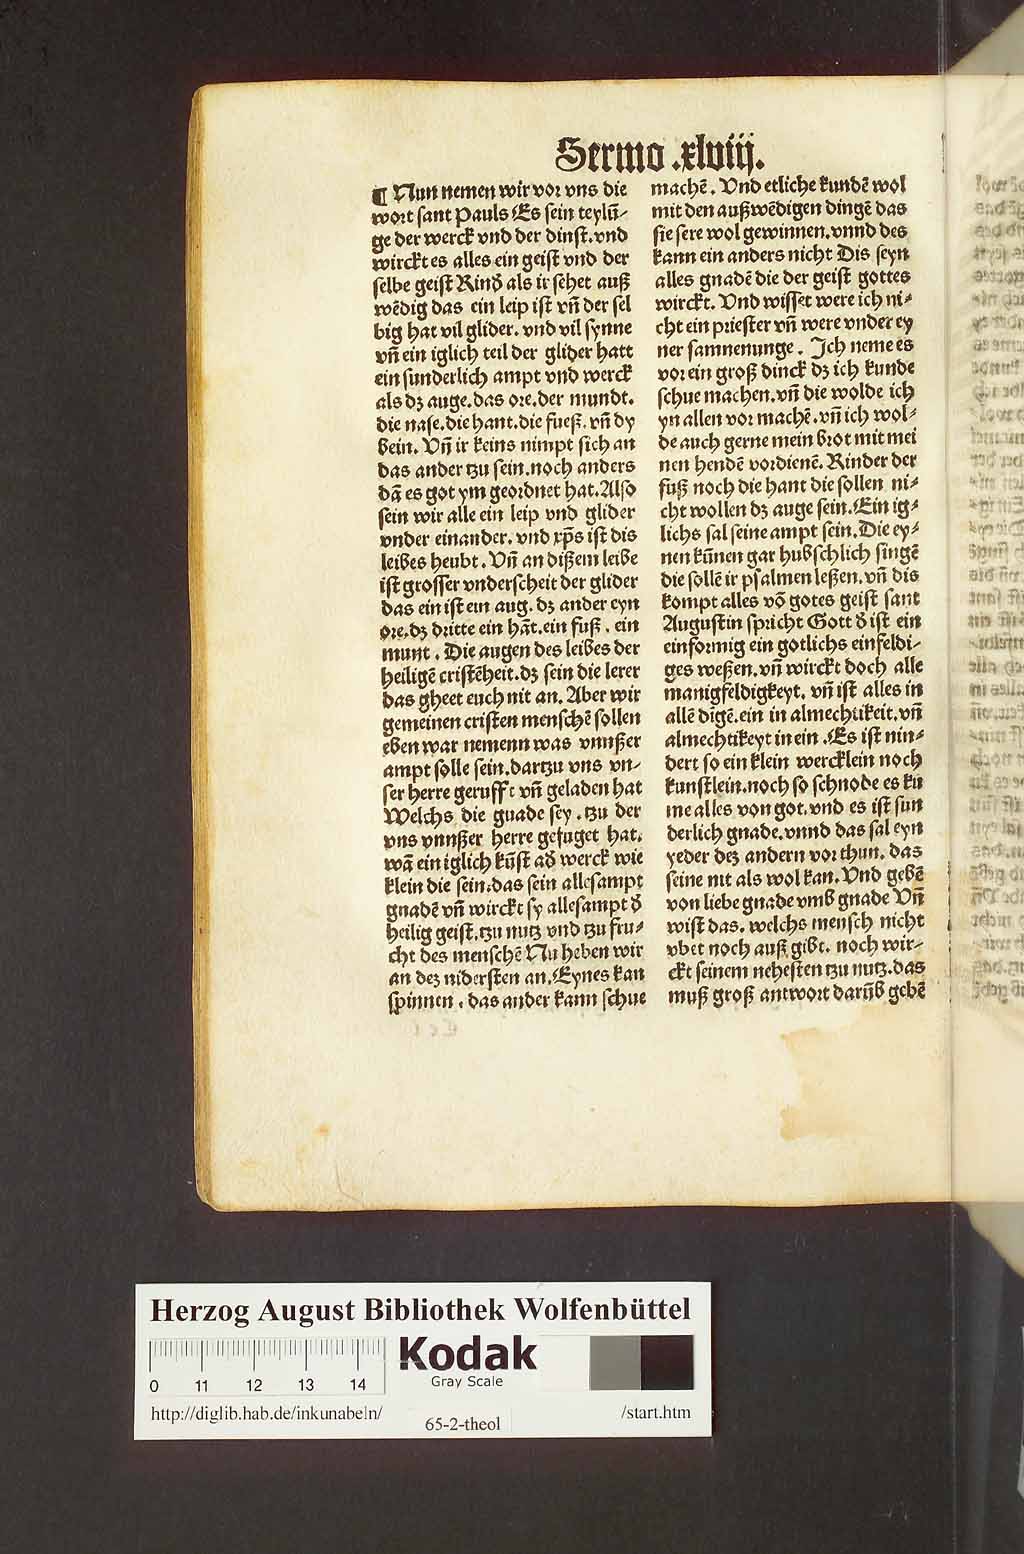 Sermo .xlviij.
¶ Nun nemen wir vor vns die
wort sant Pauls Es sein teylū-
ge der werck vnd der dinst. vnd
wirckt es alles ein geist vnd der
selbe geist Rinđ als ir sehet auß
wēdig das ein leip ist vn̄ der sel
big hat vil glider. vnd vil synne
vn̄ ein iglich teil der glider hatt
ein sunderlich ampt vnd werck
als dz auge. das ore. der mundt.
die nase. die hant. die fueß. vn̄ dy
bein. Vn̄ ir keins nimpt sich an
das ander tzu sein. noch anders
dā es got ym geordnet hat. Also
sein wir alle ein leip vnd glider
vnder einander. vnd xp̄s ist dis
leibes heubt. Vn̄ an dißem leibe
ist grosser vnderscheit der glider
das ein ist ein aug. dz ander eyn
ore. dz dritte ein hāt. ein fuß. ein
munt. Die augen des leibes der
heiligē cristēheit. dz sein die lerer
das gheet euch nit an. Aber wir
gemeinen cristen menschē sollen
eben war nemenn was vnnßer
ampt solle sein. dartzu vns vn-
ser herre gerufft vn̄ geladen hat
Welchs die guade sey. tzu der
vns vnnßer herre gefuget hat.
wā ein iglich kūst ađ werck wie
klein die sein. das sein allesampt
gnadē vn̄ wirckt sy allesampt đ
heilig geist. tzu nutz vnd tzu fru-
cht des menschē Nu heben wir
an dez nidersten an. Eynes kan
spinnen. das ander kann schue
machē. Vnd etliche kundē wol
mit den außwēdigen dingē das
sie sere wol gewinnen. vnnd des
kann ein anders nicht Dis seyn
alles gnadē die der geist gottes
wirckt. Vnd wisset were ich ni-
cht ein priester vn̄ were vnder ey
ner samnenunge. Ich neme es
vor ein groß dinck dz ich kunde
schue machen. vn̄ die wolde ich
yn allen vor machē. vn̄ ich wol-
de auch gerne mein brot mit mei
nen hendē vordienē. Rinder der
fuß noch die hant die sollen ni-
cht wollen dz auge sein. Ein ig-
lichs sal seine ampt sein. Die ey-
nen kūnen gar hubschlich singē
die sollē ir psalmen leßen. vn̄ dis
kompt alles vō gotes geist sant
Augustin spricht Gott đ ist ein
einformig ein gotlichs einfeldi-
ges weßen. vn̄ wirckt doch alle
manigfeldigkeyt. vn̄ ist alles in
allē digē. ein in almechtikeit. vn̄
almechtikeyt in ein. Es ist nin-
dert so ein klein wercklein noch
kunstlein. noch so schnode es kū
me alles von got. vnd es ist sun
derlich gnade. vnnd das sal eyn
yeder dez andern vor thun. das
seine nit als wol kan. Vnd gebē
von liebe gnade vmb gnade Vn̄
wist das. welchs mensch nicht
vbet noch auß gibt. noch wir-
ckt seinem nehesten tzu nutz. das
muß groß antwort darūb gebē
Herzog August Bibliothek Wolfenbüttel
0 11 12 13 14
Kodak
Gray Scale
http://diglib.hab.de/inkunabeln/
65-2-theol
/start.htm